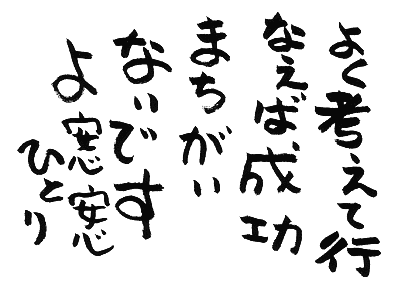 よく考えて行
なえば成功
まちがい
ないです
よ 窓安窓
ひとり